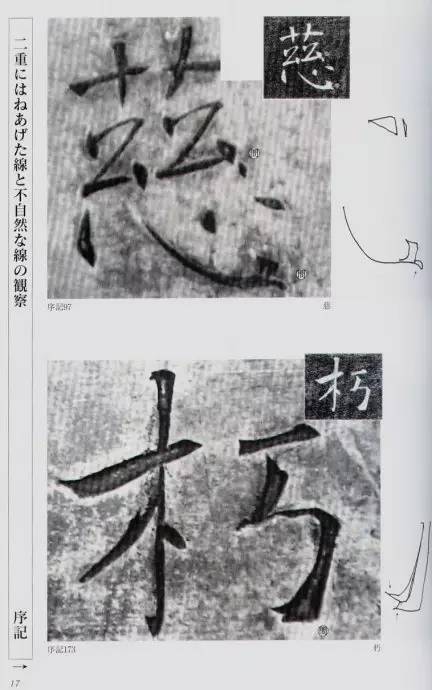 二重にはねあげた線と不自然な線の観察
序記
17
慈
慈
序記97
慈
朽
朽
序記173
朽